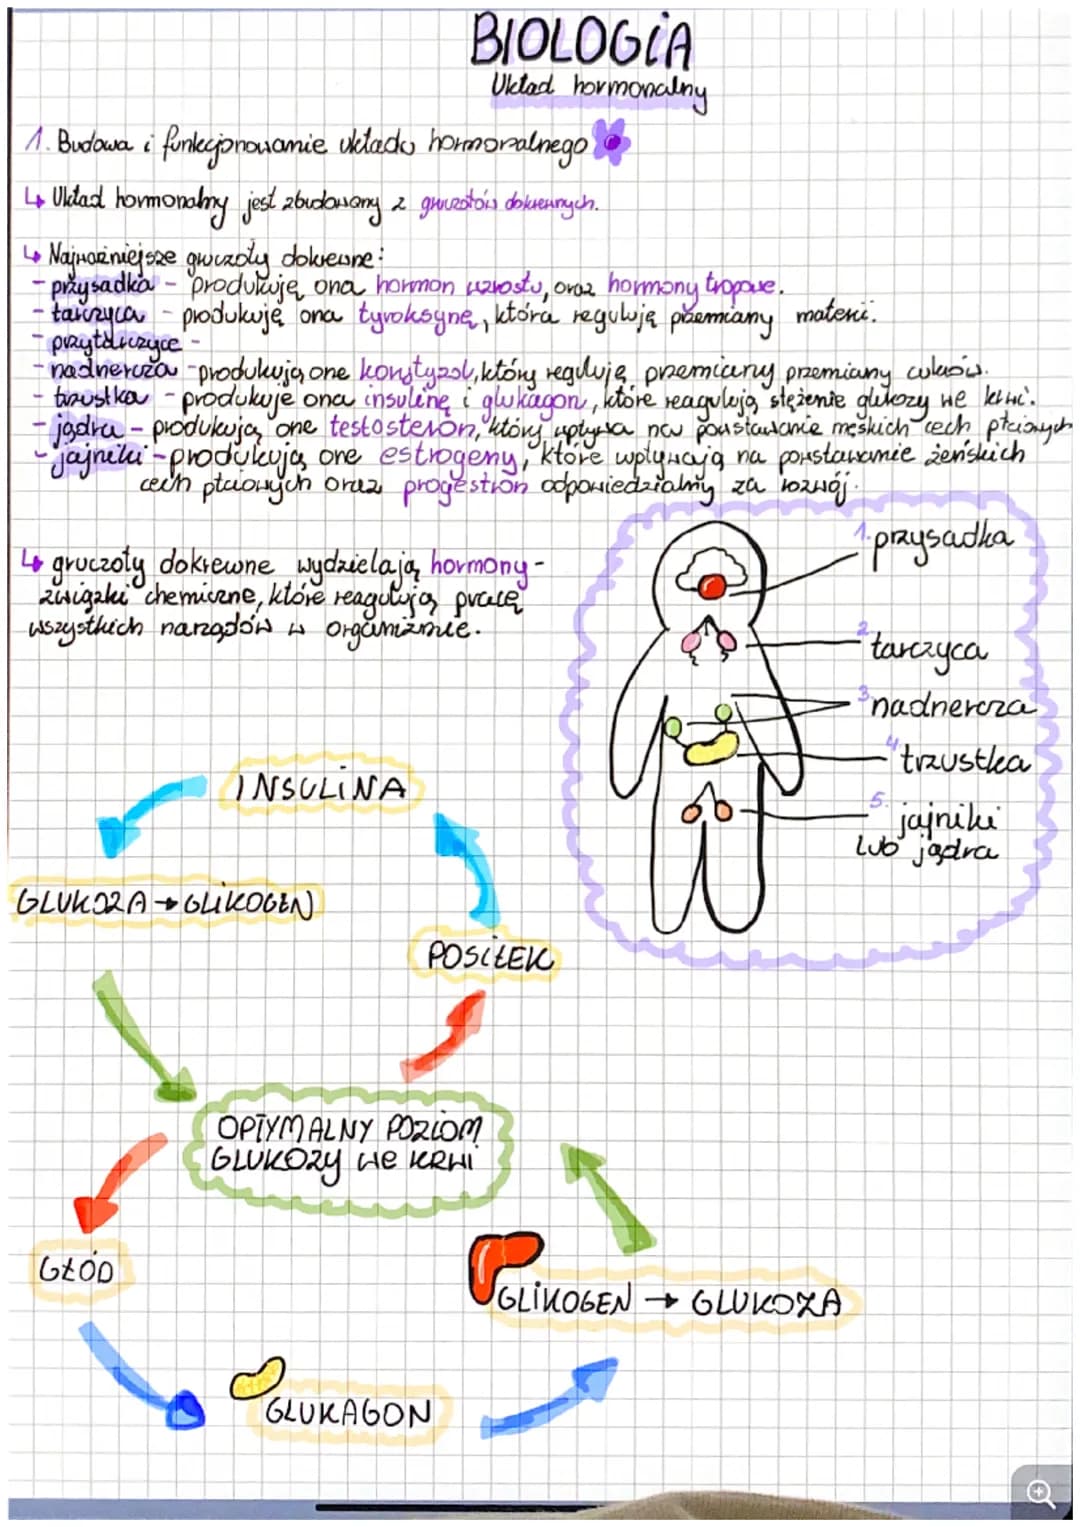 BIOLOGIA
Układ hormonalny
1. Budowa i funkcjonowanie układu hormonalnego
↳ Układ hormonalny jest zbudowany z gruczołów dokrewnych.
↳ Najważniejsze gruczoły dokrewne:
- przysadka - produkuję ona hormon wzrostu, oraz hormony tropowe.
- tarczyca - produkuję ona tyroksynę, która regulują przemiany materii.
- przytarczyce -
- nadnercza - produkują one konstyzol, który regulują przemiany przemiany cukrów.
- trzustka - produkuje ona insulinę i glukagon, które reagulują stężenie glukozy we krwi.
- jądra - produkują one testosteron, który wpływa na powstawanie męskich cech płciowych
- jajniki - produkują one estrogeny, które wpływają na powstawanie żeńskich
cech płciowych oraz progestron odpowiedzialny za rozwój.
↳ gruczoły dokrewne wydzielają hormony -
związki chemiczne, które reagulują pracę
wszystkich narządów w organizmie.
1. przysadka
2. tarczyca
3. nadnercza
4. trzustka
5. jajniki
lub jądra
INSULINA
GLUKOZA → GLIKOGEN
POSIŁEK
OPTYMALNY POZIOM
GLUKOZY WE KRWI
GŁÓD
GLIKOGEN → GLUKOZA
GLUKAGON